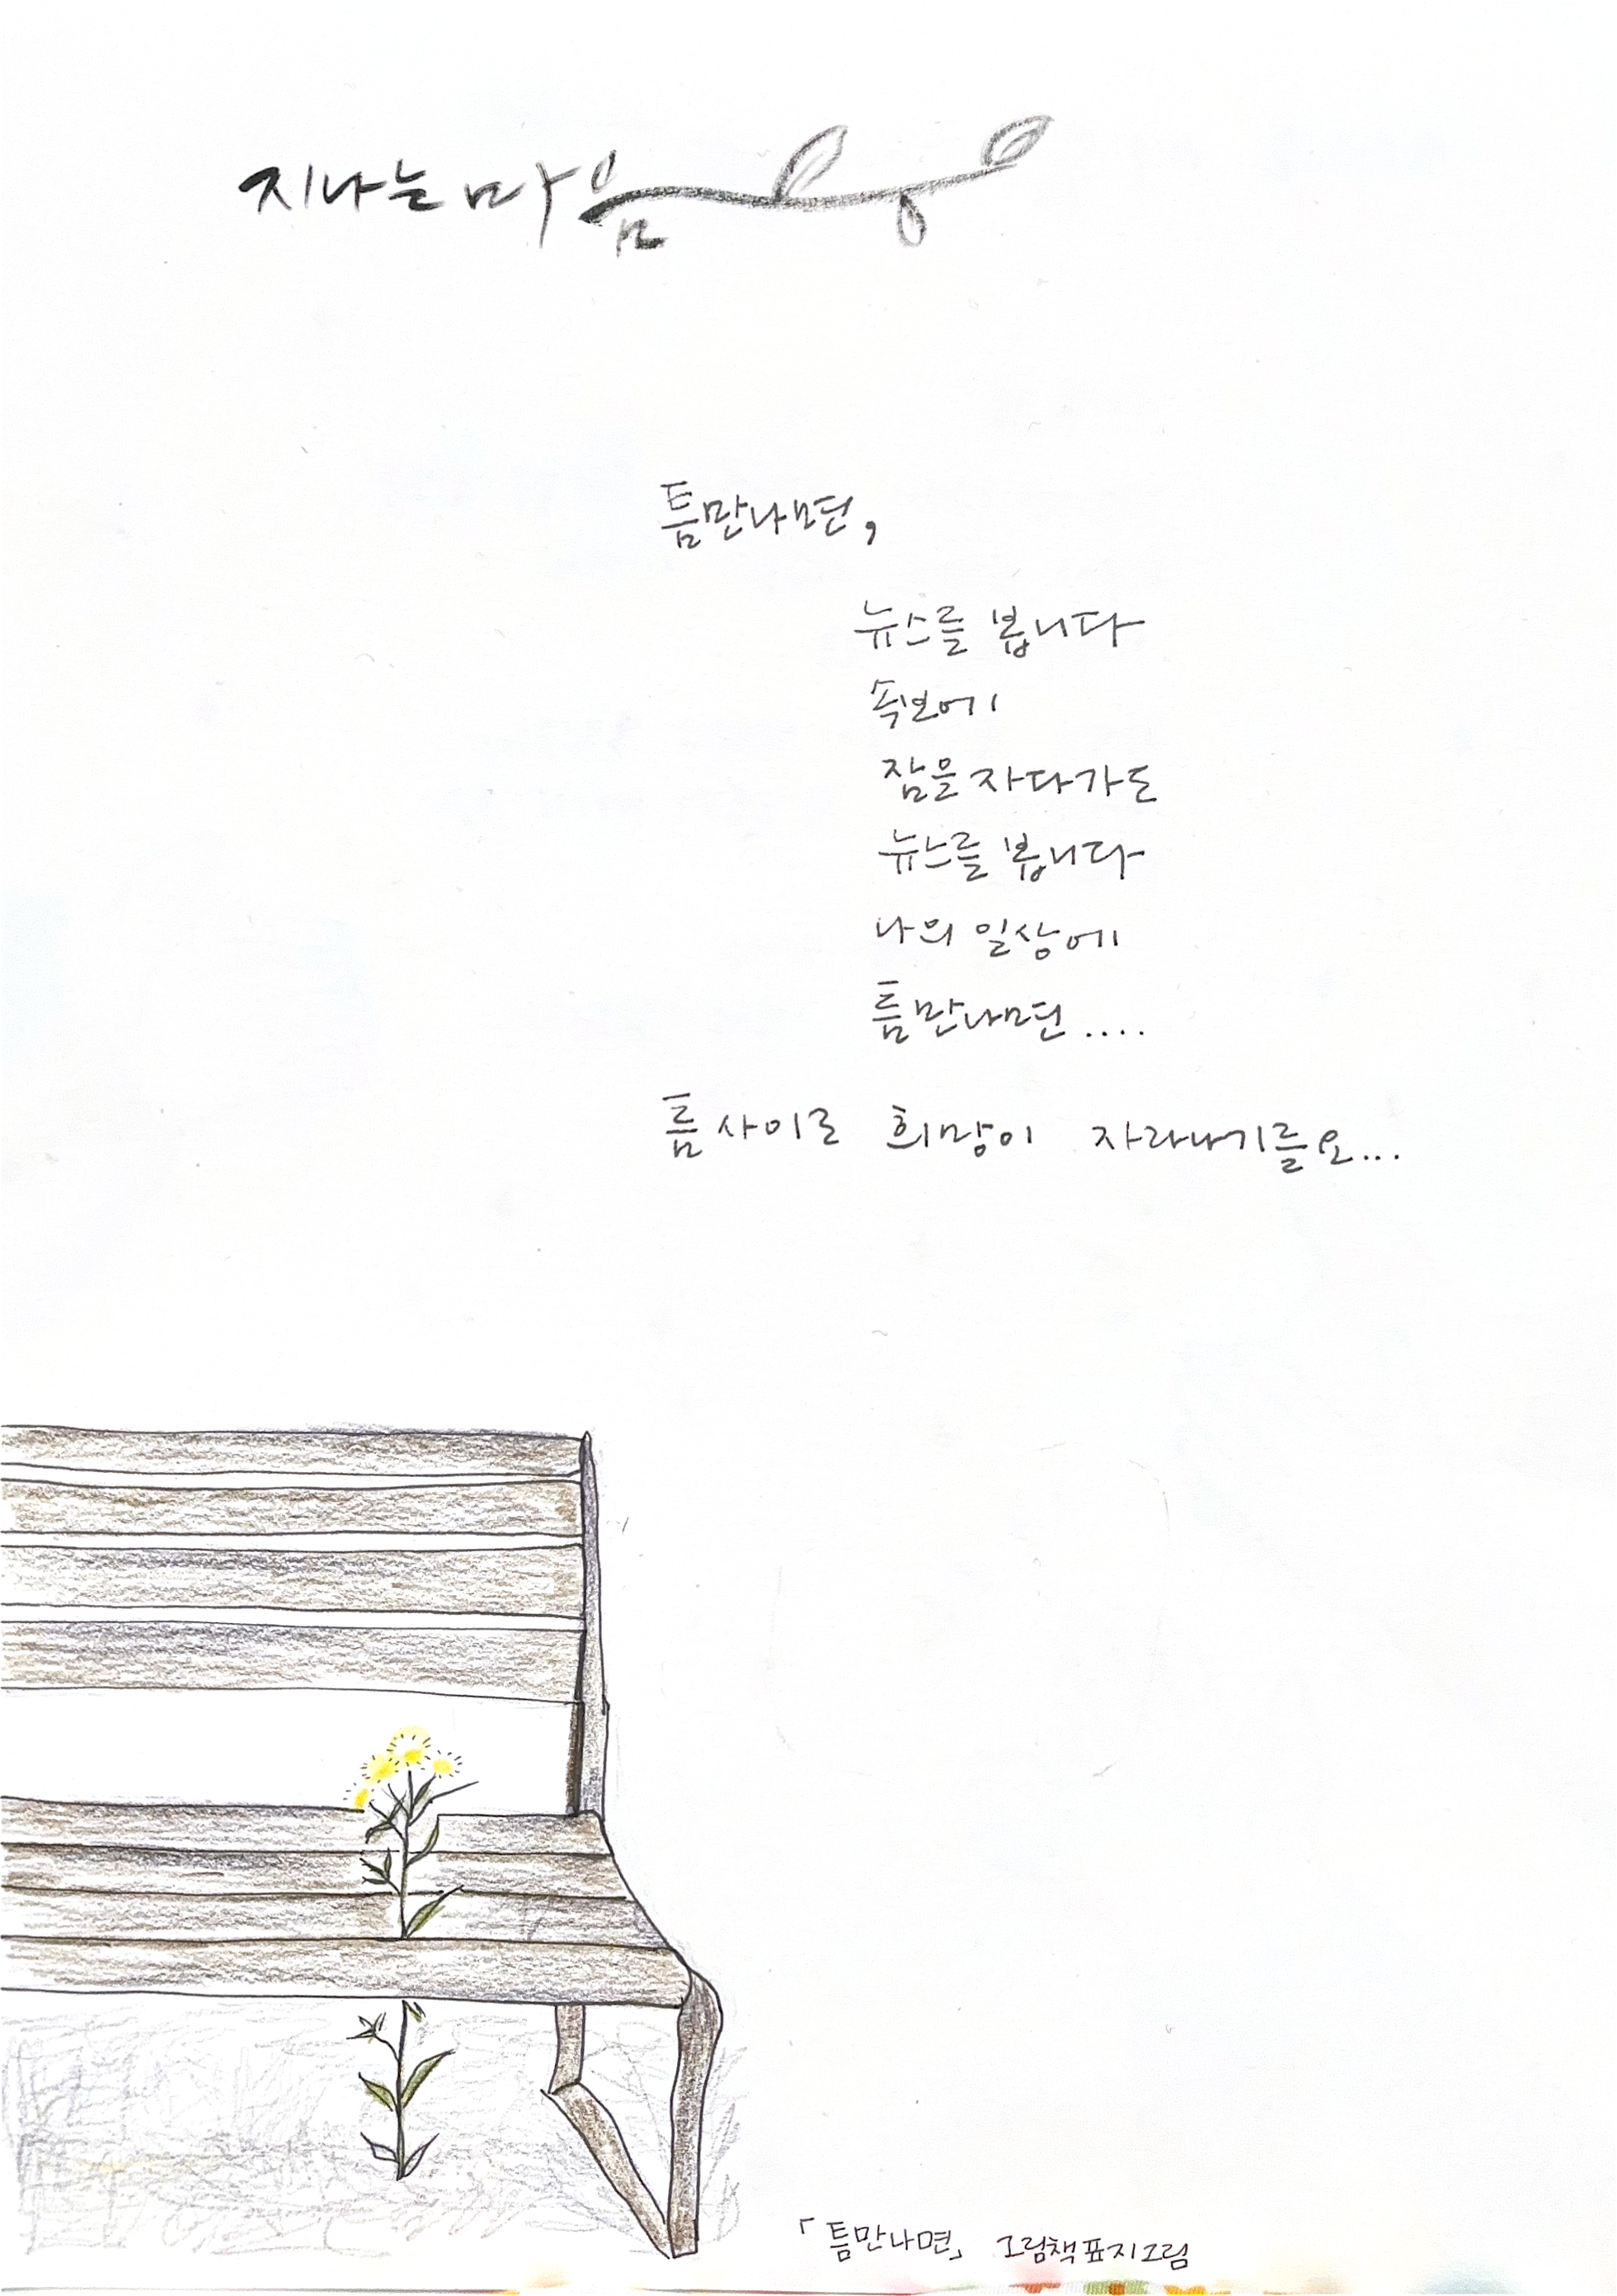 지나는 마음
틈만나면,
뉴스를 봅니다
속보에
잠을 자다가도
뉴스를 봅니다
나의 일상에
틈만나면....
틈 사이로 희망이 자라나기를요...
「틈만나면」 그림책표지그림